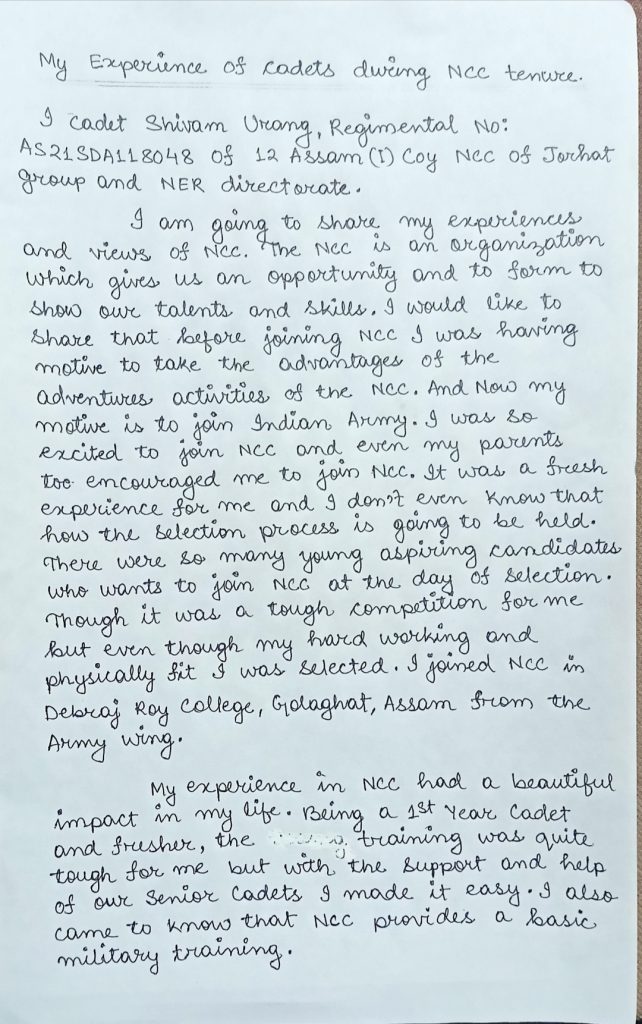 My Experience of cadets during NCC tenure.
I cadet Shivam Urang, Regimental No:
AS21SDA118048 of 12 Assam (I) Coy NCC of Jorhat
group and NER directorate.
I am going to share my experiences
and views of NCC. The NCC is an organization
which gives us an opportunity and to form to
show our talents and skills. I would like to
share that before joining NCC I was having
motive to take the advantages of the
adventures activities of the NCC. And Now my
motive is to join Indian Army. I was so
excited to join NCC and even my parents
too encouraged me to join NCC. It was a fresh
experience for me and I don't even know that
how the selection process is going to be held.
There were so many young aspiring candidates
who wants to join NCC at the day of selection.
Though it was a tough competition for me
but even though my hard working and
physically fit I was selected. I joined NCC in
Debraj Roy College, Golaghat, Assam from the
Army wing.
My experience in NCC had a beautiful
impact in my life. Being a 1st Year Cadet
and fresher, the training was quite
tough for me but with the support and help
of our Senior Cadets I made it easy. I also
came to know that NCC provides a basic
military training.